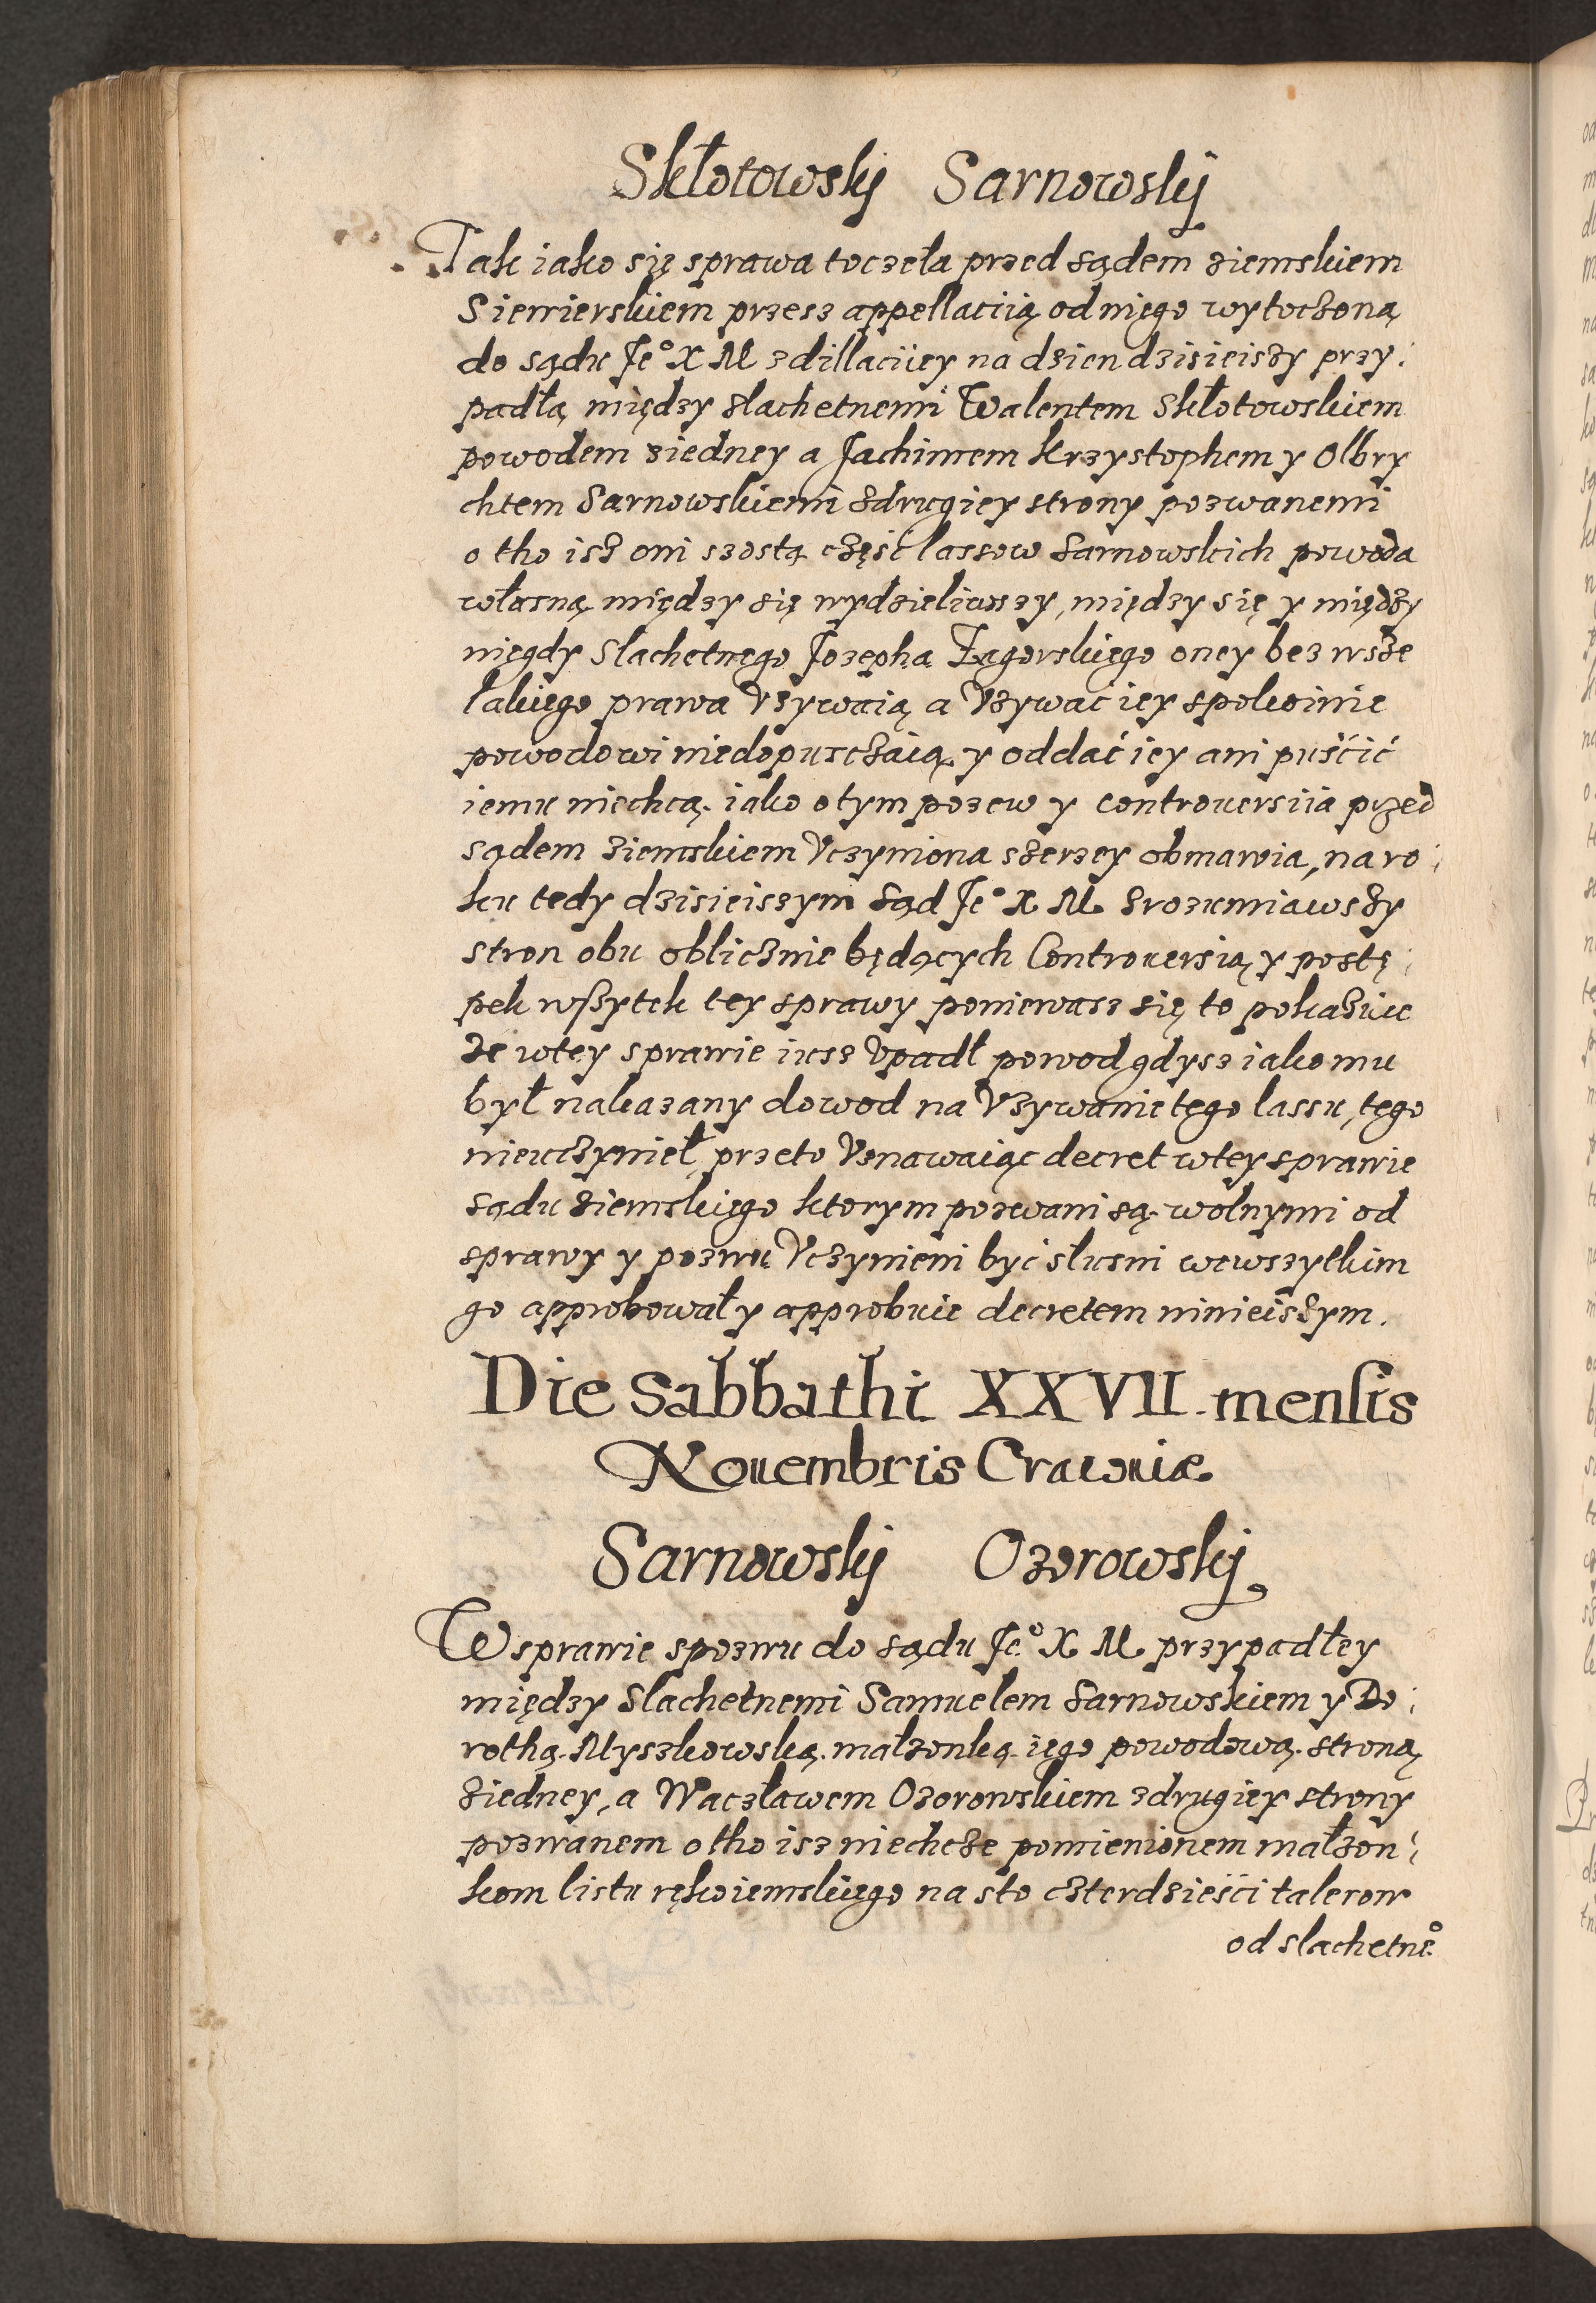 Skłotowsky Sarnowsky
Tak iako się sprawa toczeła przed sądem ziemskiem
Siewierskiem przesz appellaciią od niego wytoczoną
do sądu Je° X M z dillaciiey na dzien dzisieiszy przy:
padłą między slachetnemi Walentem Skłotowskiem
powodem ziedney a Jachimem Krzystophem y Olbry
chtem Sarnowskiemi zdrugiey strony pozwanemi
o tho isz oni szostą część lassow Sarnowskich powoda
własną między się wydzieliwszy, między się y między
niegdy Slachetnego Jozepha Zagorskiego oney bez wsze
lakiego prawa Vzywaią a Vzywać iey spokoinie
powodowi niedopusczaią y oddać iey ani puśćić
iemu niechcą. iako otym pozew y controuersiia przed
sądem ziemskiem Vczyniona szerzey obmawia, na ro:
ku tedy dzisieiszym Sąd Je° X M zrozumiawszy
stron obu oblicznie będących Controuersią y postę:
pek wszytek tey sprawy poniewasz się to pokazuie
ze wtey sprawie iusz Vpadł powod gdysz iako mu
był nakazany dowod na Vzywanie tego lassu, tego
nieuczynieł, przeto Vznawaiąc decret wtey sprawie
sądu ziemskiego ktorym pozwani są wolnymi od
sprawy y pozwu Vczynieni być słusni wewszytkim
go approbował y approbuie decretem ninieiszym.
Die Sabbathi XXVII. mensis
Nouembris Cracouiæ
Sarnowsky Ozorowsky
W sprawie spozwu do sądu Je.° X M przypadłey
między Slachetnemi Samuelem Sarnowskiem y Do:
rothą Myszkowską małzonką iego powodową stroną
ziedney, a Wacżławem Ozorowskiem zdrugiey strony
pozwanem o tho isz niechcze pomienionem małzon:
kom listu rękoiemskiego na sto czterdzieści talerow
od slachetne.°